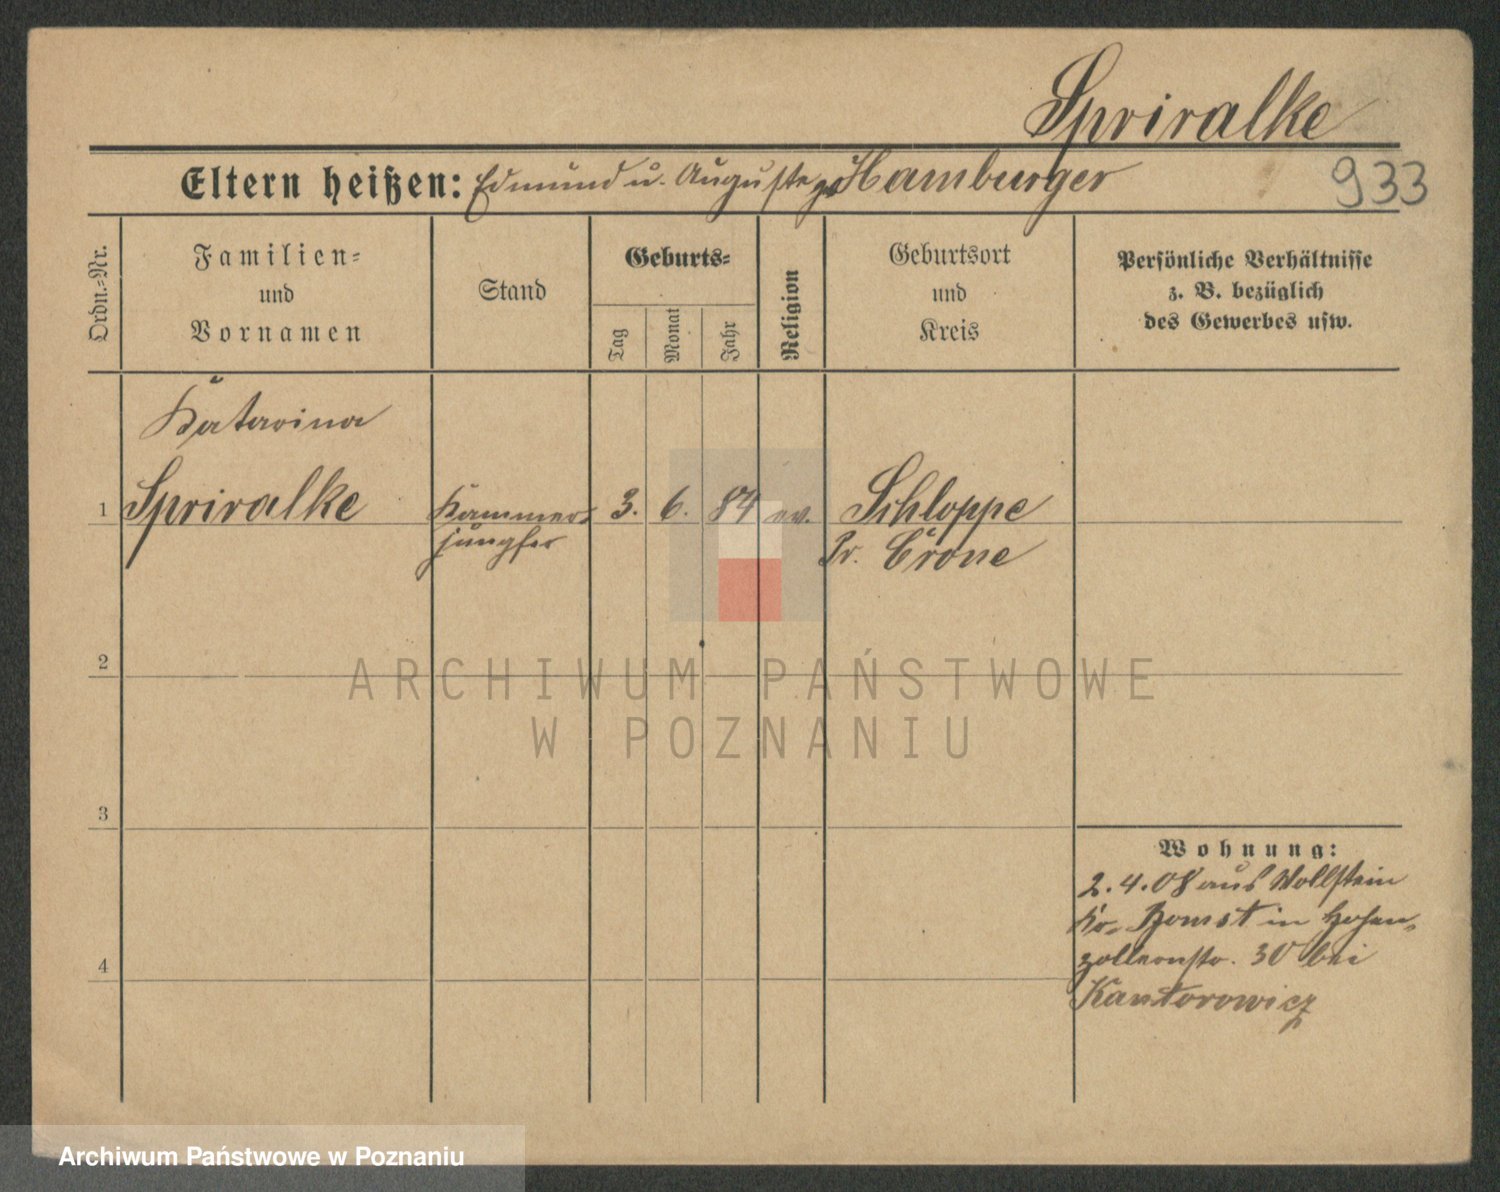 Spriralke
Eltern heißen: Edmund u. Auguste g. Hamburger
933
Ordn.-Nr.
Familien-
und
Vornamen
Stand
Geburts-
Tag
Monat
Jahr
Religion
Geburtsort
und
Kreis
Persönliche Verhältnisse
z. B. bezüglich
des Gewerbes usw.
Katarina
1 Spriralke Kammer- 3. 6. 84 ev. Schloppe
jungfer Pr. Crone
2
ARCHIWUM PAŃSTWOWE
W POZNANIU
3
Wohnung:
2.4.08 aus Wollstein
Kr. Bomst in Hohen-
zollernstr. 30 bei
4
Kantorowicz
Archiwum Państwowe w Poznaniu